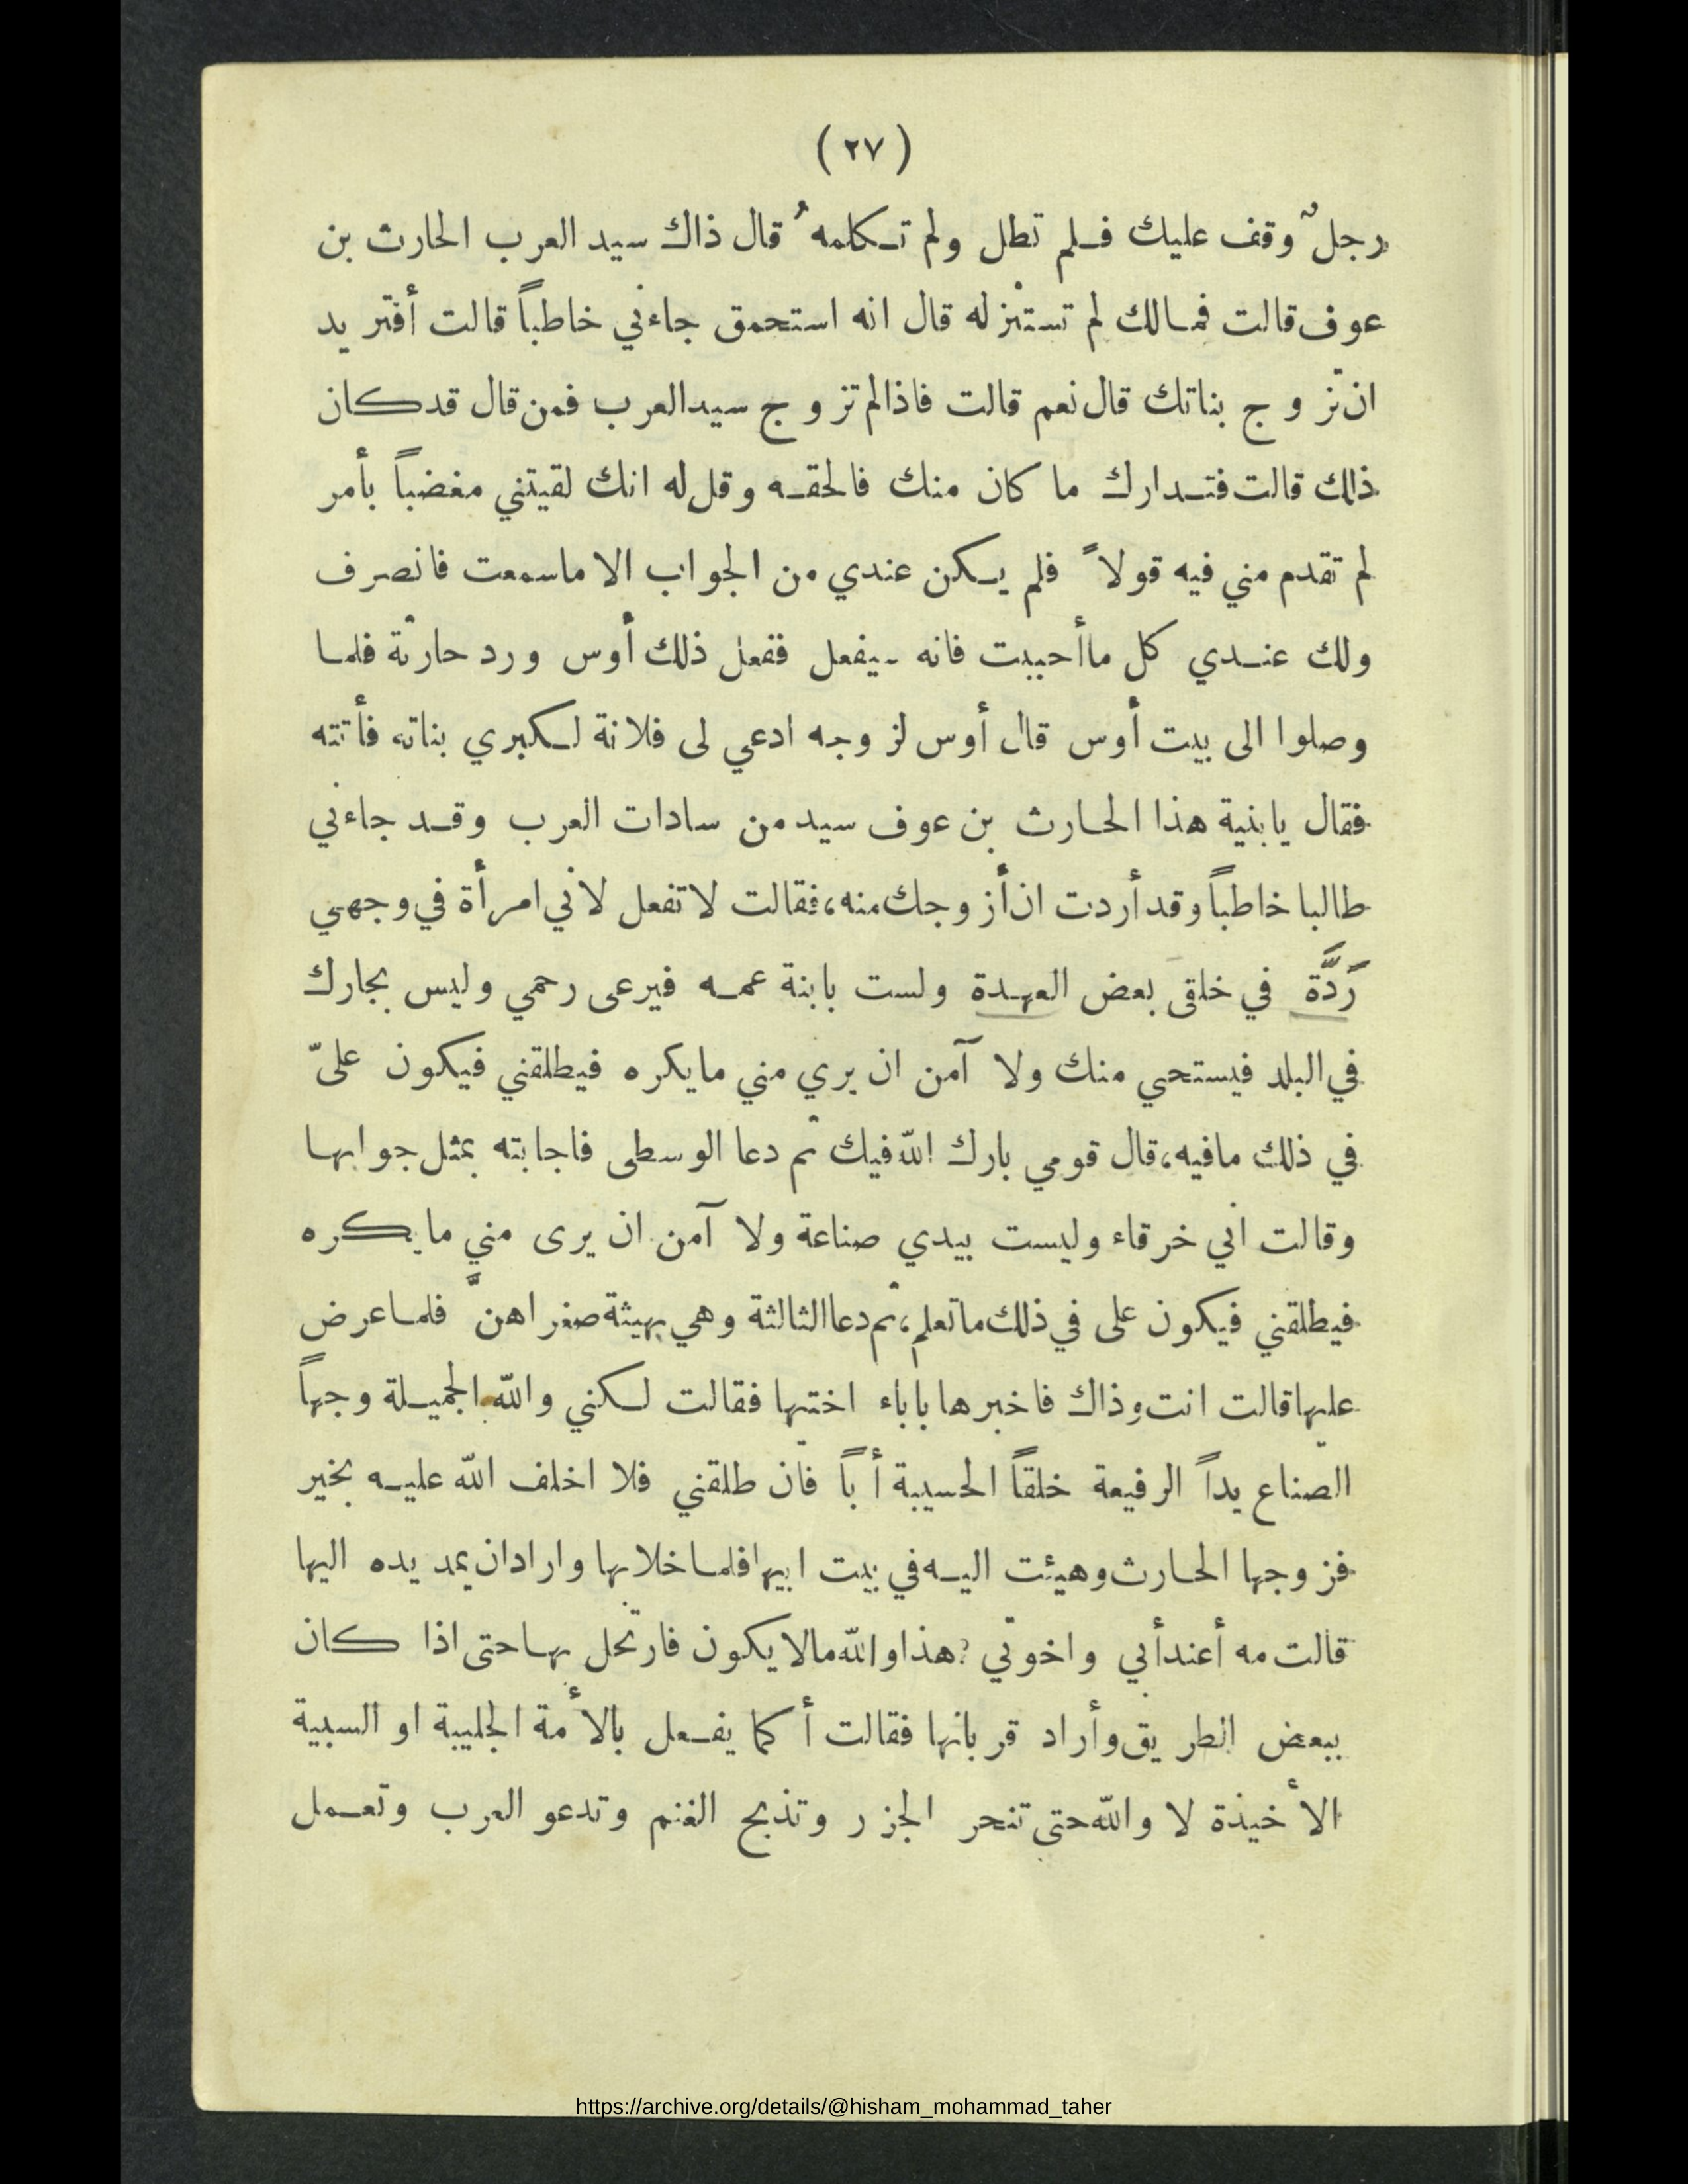 ( ٢٧ )
رجلٌ وقف عليك فلم تطل ولم تكلمهُ قال ذاك سيد العرب الحارث بن
عوف قالت فمالك لم تستنزله قال انه استحمق جاءني خاطباً قالت أفتريد
ان تزوج بناتك قال نعم قالت فاذا لم تزوج سيد العرب فمن قال قد كان
ذلك قالت فتدارك ما كان منك فالحقه وقل له انك لقيتني مغضباً بأمر
لم تقدم مني فيه قولاً فلم يكن عندي من الجواب الا ما سمعت فانصرف
ولك عندي كل ما أحببت فانه سيفعل ففعل ذلك أوس ورد حارثة فلما
وصلوا الى بيت أوس قال أوس لزوجه ادعي لى فلانة لكبري بناته فأتته
فقال يا بنية هذا الحارث بن عوف سيد من سادات العرب وقد جاءني
طالبا خاطباً وقد أردت ان أزوجك منه، فقالت لا تفعل لاني امرأة في وجهي
رَدَّة في خلقى بعض العهدة ولست بابنة عمه فيرعى رحمي وليس بجارك
في البلد فيستحي منك ولا آمن ان يري مني ما يكره فيطلقني فيكون علىّ
في ذلك ما فيه، قال قومي بارك اللّه فيك ثم دعا الوسطى فاجابته بمثل جوابها
وقالت اني خرقاء وليست بيدي صناعة ولا آمن ان يرى مني ما يكره
فيطلقني فيكون على في ذلك ما تعلم، ثم دعا الثالثة وهي بهيثة صغراهنّ فلما عرض
عليها قالت انت وذاك فاخبرها باباء اختها فقالت لكنني واللّه الجميلة وجهاً
الصناع يداً الرفيعة خلقاً الحسيبة أباً فان طلقني فلا اخلف اللّه عليه بخير
فزوجها الحارث وهيئت اليه في بيت ابيها فلما خلا بها واراد ان يمد يده اليها
قالت مه أعند أبي واخوتي ? هذا واللّه مالا يكون فارتحل بها حتى اذا كان
ببعض الطريق وأراد قربانها فقالت أكما يفعل بالأمة الجليبة او السبية
الأخيذة لا واللّه حتى تنحر الجزر وتذبح الغنم وتدعو العرب وتعمل
https://archive.org/details/@hisham_mohammad_taher